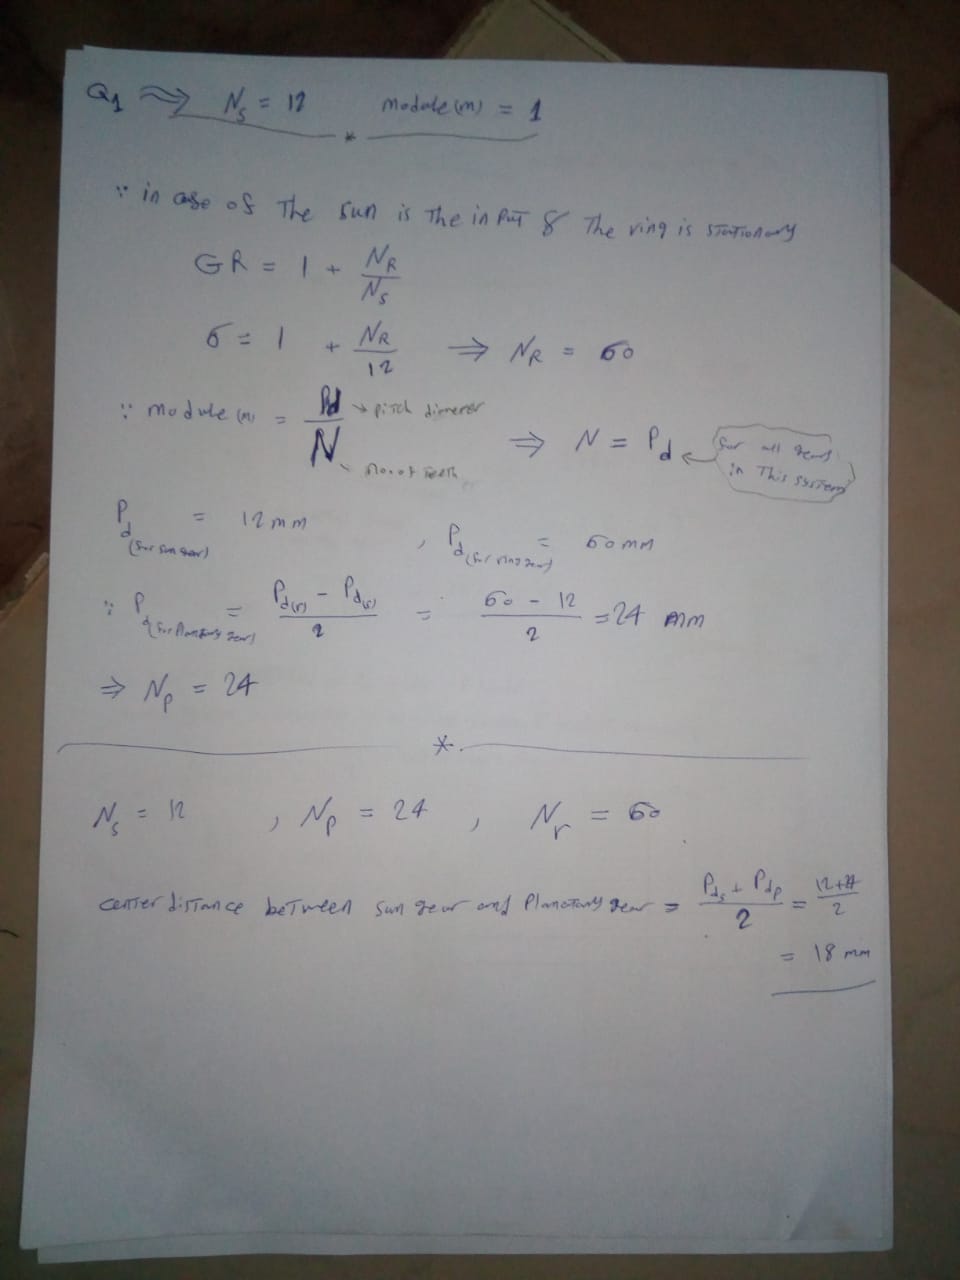 Q1 ⇒ Ns = 12 module (m) = 1
*
∵ in case of The sun is The input & The ring is stationary
GR = 1 + NR/Ns
6 = 1 + NR/12 ⇒ NR = 60
∵ module (m) = Pd/N → pitch diameter ⇒ N = Pd ← for all gears in This system
no. of teeth
Pd (for sun gear) = 12 mm , Pd (for ring gear) = 60 mm
∵ Pd (for Planetary gear) = (Pd(r) - Pd(s))/2 = (60 - 12)/2 = 24 mm
⇒ Np = 24
*
Ns = 12 , Np = 24 , Nr = 60
center distance between sun gear and Planetary gear = (Pds + Pdp)/2 = (12+24)/2
= 18 mm